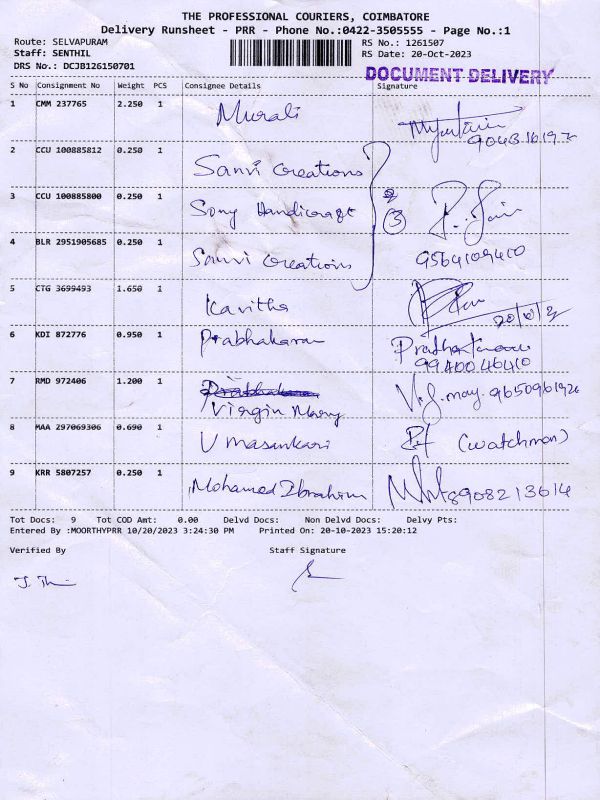 THE PROFESSIONAL COURIERS, COIMBATORE
Delivery Runsheet - PRR - Phone No.:0422-3505555 - Page No.:1
Route: SELVAPURAM RS No.: 1261507
Staff: SENTHIL RS Date: 20-Oct-2023
DRS No.: DCJB126150701
DOCUMENT DELIVERY
S No Consignment No Weight PCS Consignee Details Signature
1 CMM 237765 2.250 1 Murali
2 CCU 100885812 0.250 1 Sanvi Creations
3 CCU 100885800 0.250 1 Sony Handicraft 3
4 BLR 2951905685 0.250 1 Sanvi Creations 9564109410
5 CTG 3699493 1.650 1 Kavitha
6 KDI 872776 0.950 1 Prabhakaran 9940046410
7 RMD 972406 1.200 1 Virgin Mary
8 MAA 297069306 0.690 1 Umasankari (watchman)
9 KRR 5807257 0.250 1 Mohamed Ibrahim 8908213614
Tot Docs: 9 Tot COD Amt: 0.00 Delvd Docs: Non Delvd Docs: Delvy Pts:
Entered By :MOORTHYPRR 10/20/2023 3:24:30 PM Printed On: 20-10-2023 15:20:12
Verified By Staff Signature